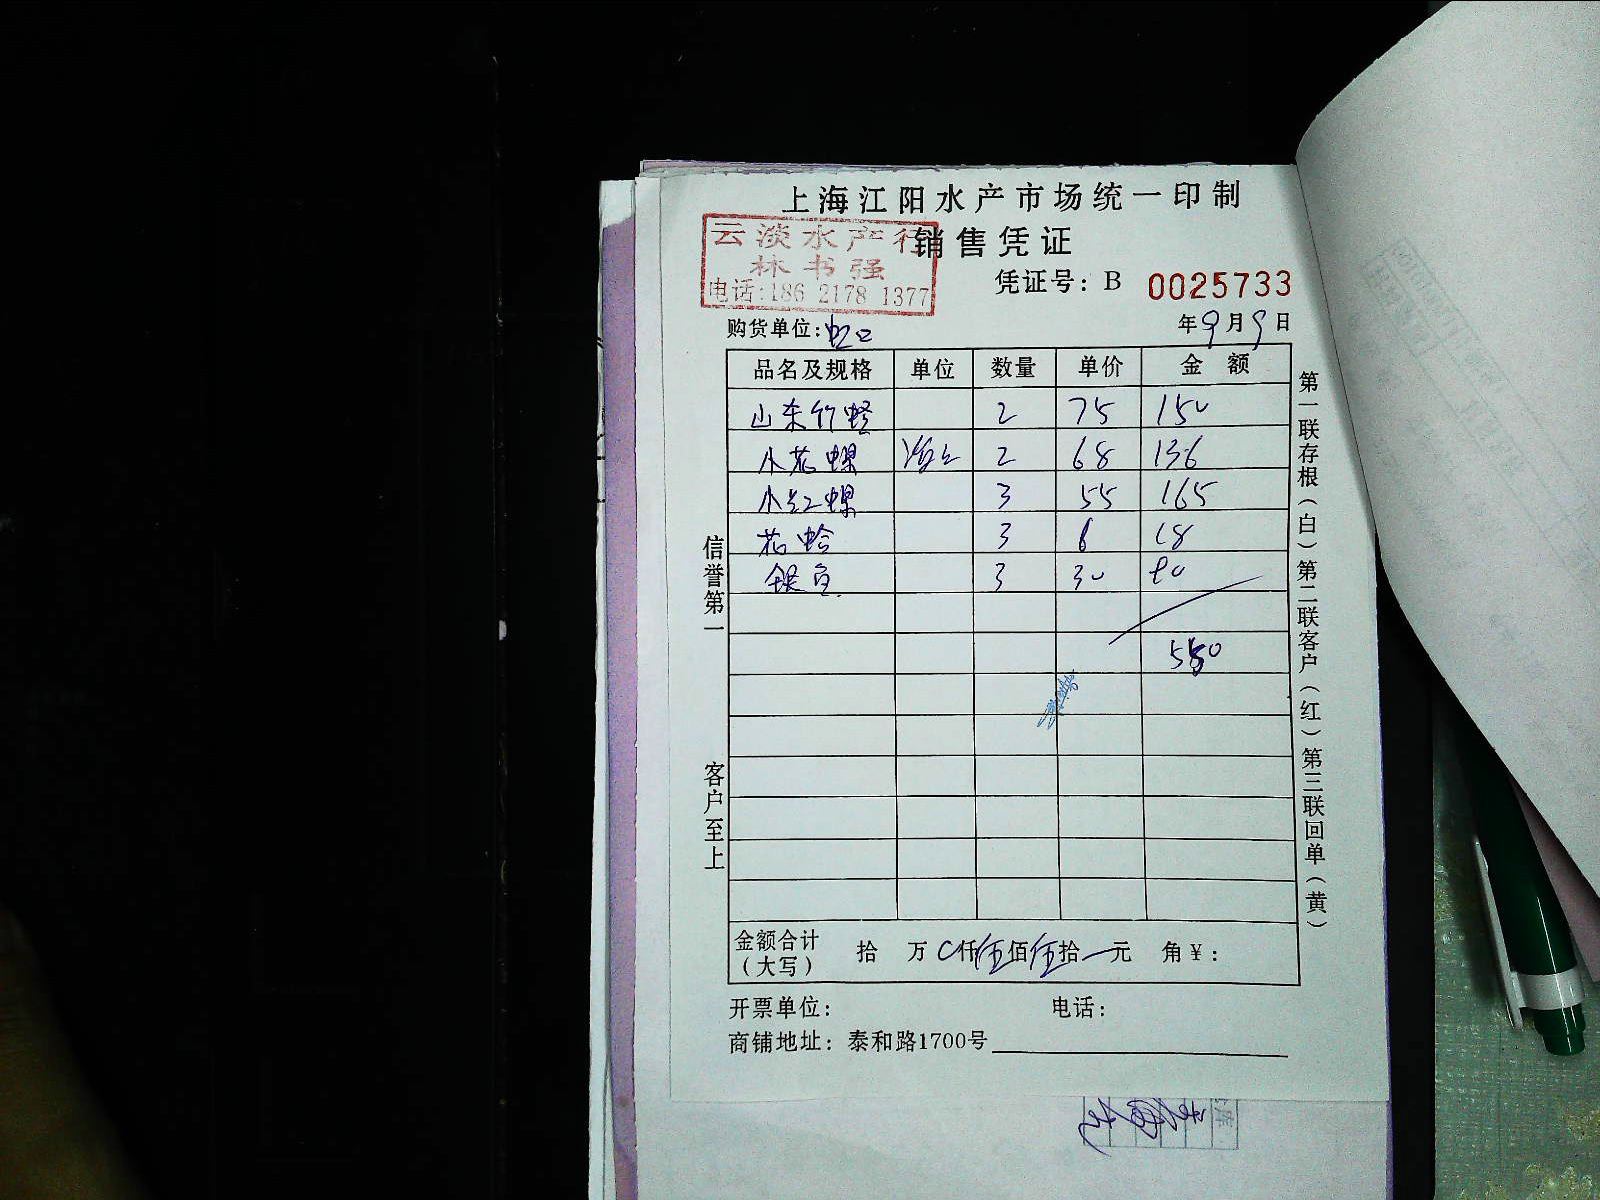 上海江阳水产市场统一印制
销售凭证
云淡水产行
林书强
电话:186 2178 1377
凭证号: B 0025733
购货单位:虹口 年9月9日
品名及规格 单位 数量 单价 金 额
山东竹蛏 2 75 150
小花螺 2 68 136
小红螺 3 55 165
花蛤 3 6 18
银鱼 3 30 90
550
金额合计(大写) 拾 万 仟伍佰伍拾 元 角 ¥:
开票单位: 电话:
商铺地址: 泰和路1700号
信誉第一
客户至上
第一联存根(白)第二联客户(红)第三联回单(黄)